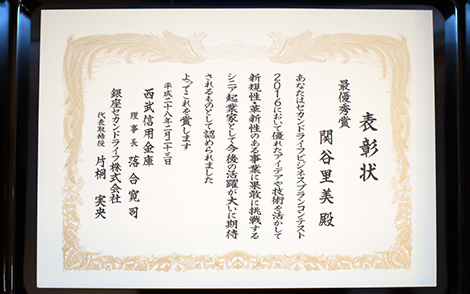 表彰状
最優秀賞
関谷里美 殿
あなたはセカンドライフビジネスプランコンテスト
2016において優れたアイデアや技術を活かして
新規性・革新性のある事業に果敢に挑戦する
シニア起業家として今後の活躍が大いに期待
されるものとして認められました
よってこれを賞します
平成二十八年二月二十三日
西武信用金庫
理事長 落合寛司
銀座セカンドライフ株式会社
代表取締役 片桐実央